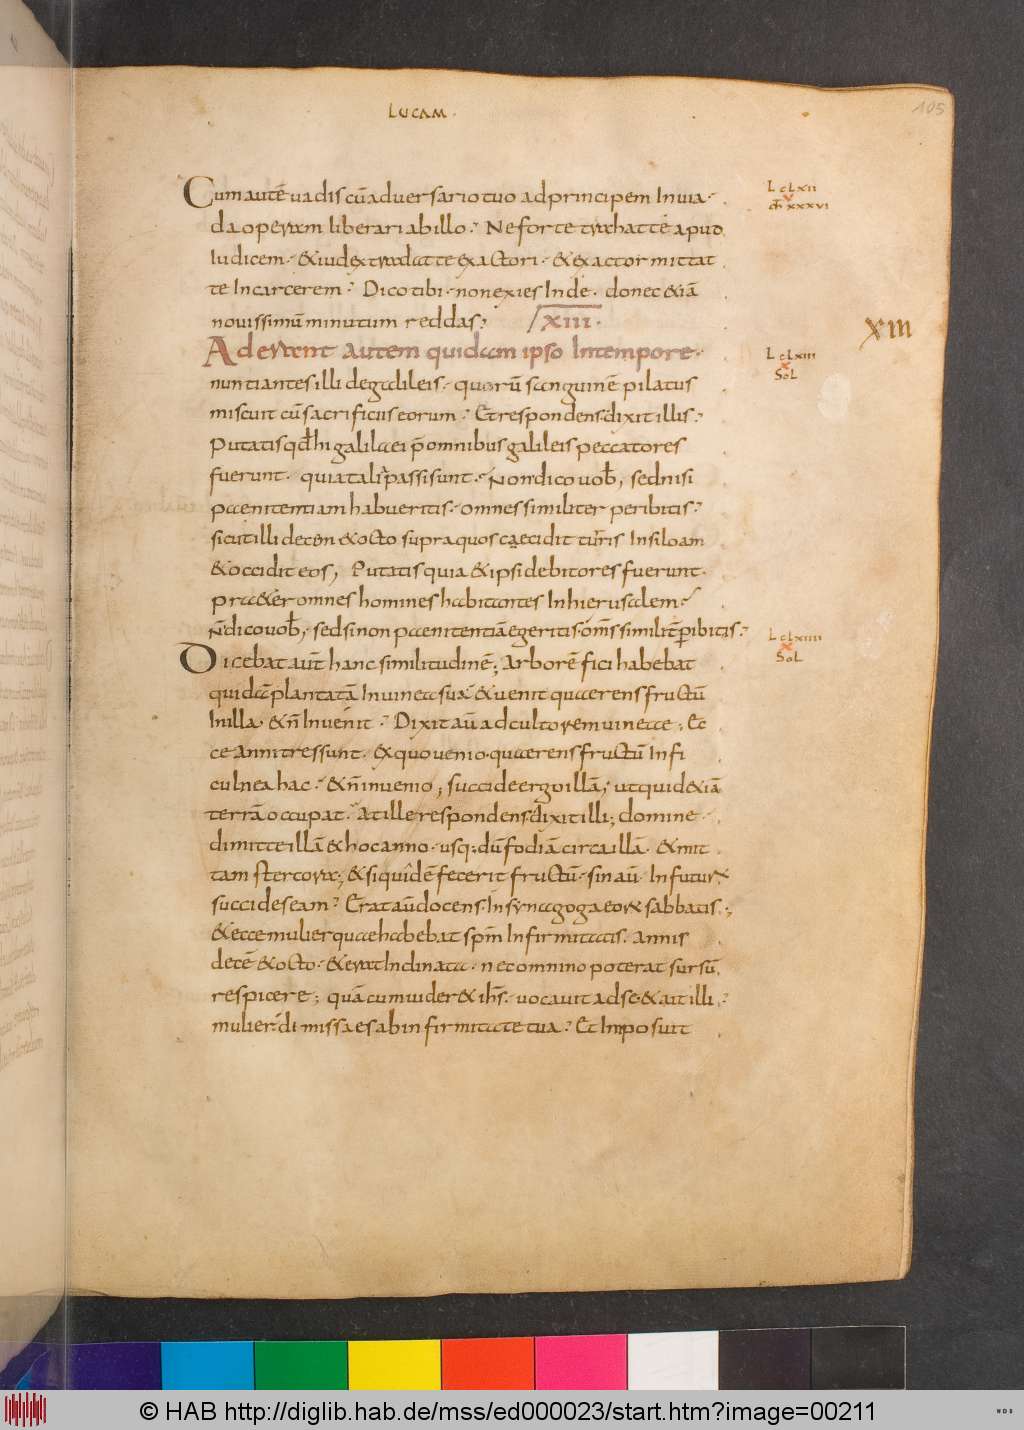 LUCAM.
105
Cum autē uadis cū aduersario tuo ad principem In uia.
da operam liberari ab illo. Ne forte trahat te apud
Iudicem. & iudex tradat te exactori. & exactor mittat
te In carcerem. Dico tibi. non exies Inde. donec &iā
nouissimū minutum reddas. XIII.
Aderant autem quidam ipso In tempore.
nuntiantes illi de galileis. quorū sanguinē pilatus
miscuit cū sacrificiis eorum. Et respondens dixit illis.
Putatis qđ hi galilaei p̄ omnibus galileis peccatores
fuerunt. quia talia passi sunt. Non dico uob, sed nisi
paenitentiam habueritis. omnes similiter peribitis.
sicut illi decem & octo supra quos caecidit turris In siloam
& occidit eos, Putatis quia & ipsi debitores fuerunt.
praeter omnes homines habitantes In hierusalem.
N̄ dico uob, sed si non paenitentiā egeritis. oms̄ similit peribitis.
Dicebat aut̄ hanc similitudinē; Arborē fici habebat
quidā plantatā In uinea sua & uenit quaerens fructū
In illa. & n̄ Inuenit. Dixit aū ad cultorem uineae. Ec
ce anni tres sunt. ex quo uenio. quaerens fructū In fi
culnea hac. & n̄ inuenio; succide ergo illā, ut quid &iā
terrā occupat. At ille respondens dixit illi; domine.
dimitte illā & hoc anno. usq; dū fodiā circa illā. & mit
tam stercora; & siquidē fecerit fructū. sin aū. In futurū
succides eam. Erat aū docens In synagoga eorū sabbatis;
& ecce mulier quae habebat spm̄ Infirmitatis. Annis
decē & octo. & erat Inclinata. nec omnino poterat sursū
respicere; quā cum uider& ihs̄. uocauit ad se. & ait illi.
mulier. dimissa es ab infirmitate tua. Et Imposuit
L cLxii
v
m̄ xxxvi
XIII
L cLxiii
x
SoL
L cLxiiii
x
SoL
© HAB http://diglib.hab.de/mss/ed000023/start.htm?image=00211
WDB